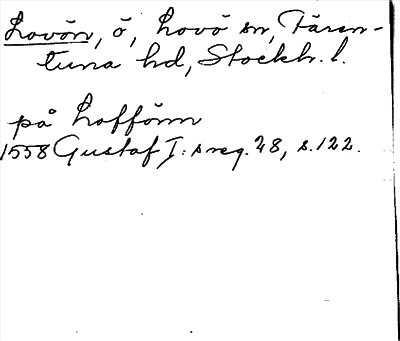 Lovön, ö, Lovö sn, Fären-
tuna hd, Stockh. l.
på Loffönn
1558 Gustaf I:s reg. 28, s. 122.